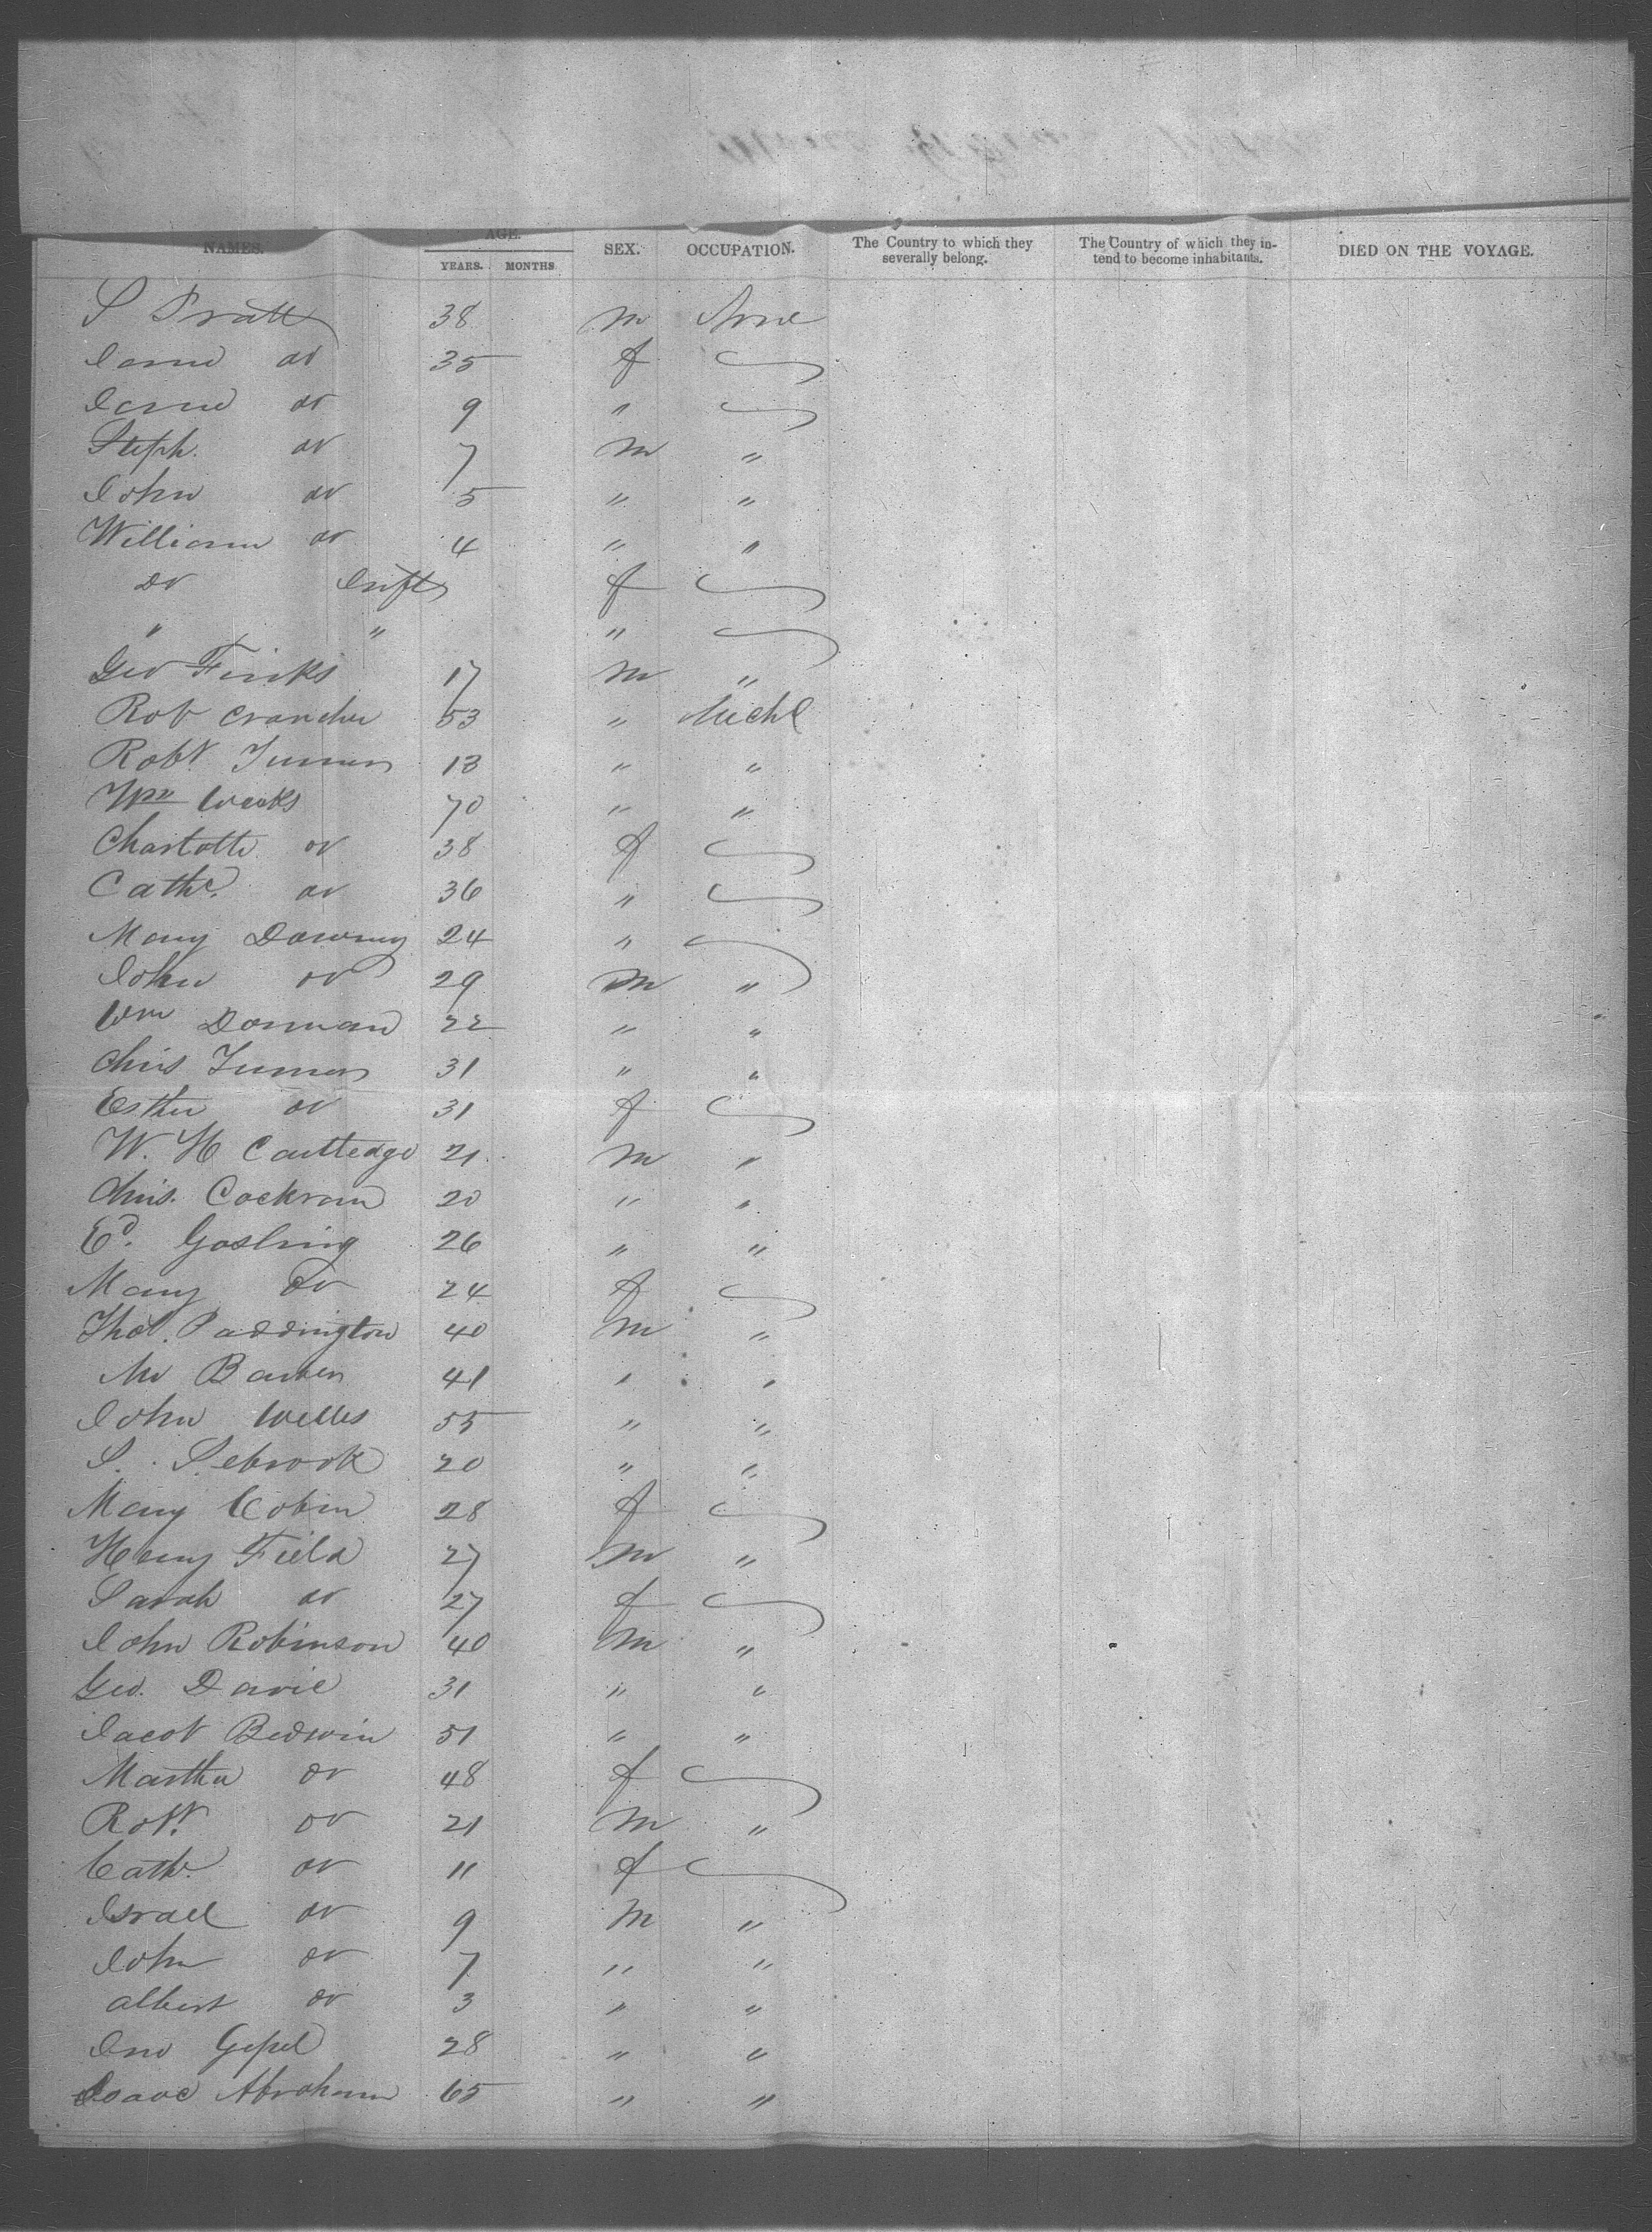 NAMES. AGE. YEARS. MONTHS SEX. OCCUPATION. The Country to which they severally belong. The Country of which they intend to become inhabitants. DIED ON THE VOYAGE.
S Pratt 38 m
Jane do 35 f
Jane do 9 "
Steph. do 7 m "
John do 5 " "
William do 4 " "
Do Inft f
" " "
Geo Finks 17 m "
Rob 53 " Mechc
Robt Turner 13 " "
Wm Weeks 70 " "
Charlotte do 38 f
Cathe. do 36 "
Mary Downey 24 "
John do 29 m "
Wm Dorman 22 " "
Chris Turner 31 " "
Esther do 31 f
W. H 21 m "
Chris. Cockram 20 " "
Ed. Gosling 26 " "
Mary Do 24 f
Thos. Paddington 40 m "
Barber 41 " "
John Welles 55 " "
S. Sebrook 20 " "
Mary Cobin 28 f
Henry Field 27 m "
Sarah do 27 f
John Robinson 40 m "
Geo. Davie 31 " "
Jacob Bedwin 51 " "
Martha do 48 f
Robt. do 21 m "
Cathe. do 11 f
Israel do 9 m "
John do 7 " "
Albert do 3 " "
Jno 28 " "
Isaac Abraham 65 " "